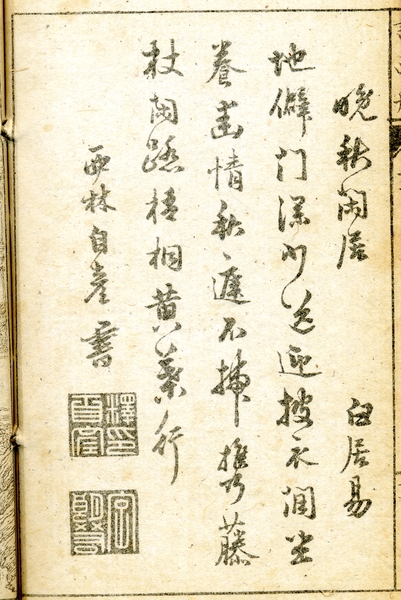 晚秋閑居　白居易
地僻门深少送迎披衣閒坐
養幽情秋庭不掃攜藤
杖閑踏梧桐黄葉行
西林自彦書